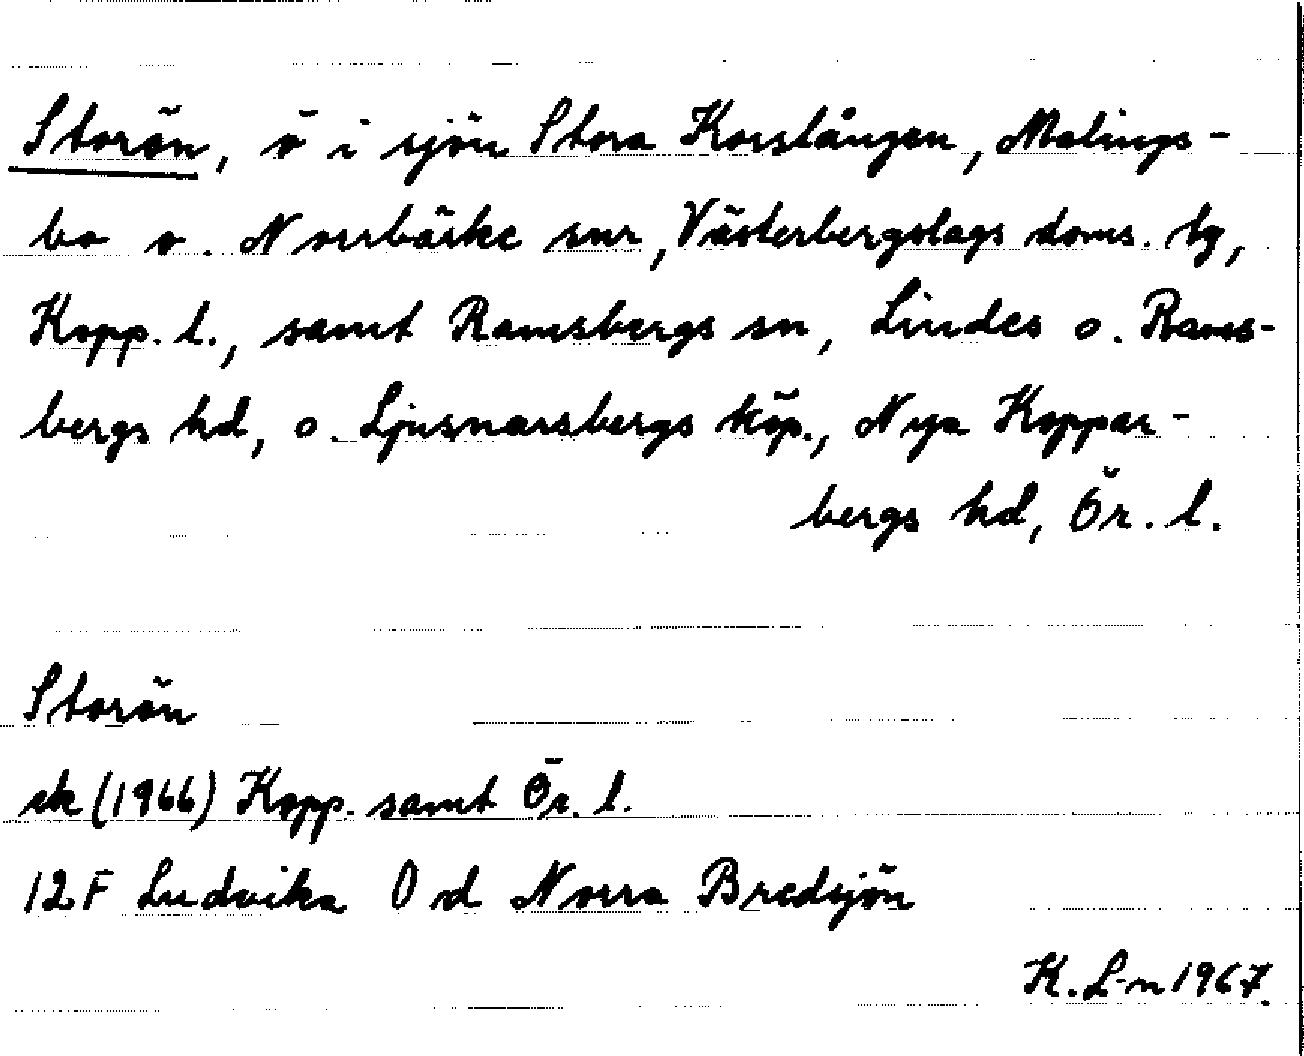 Storön, ö i sjön Stora Korslången, Malings-
bo o. Norrbärke snr, Västerbergslags doms. tg,
Kopp. l., samt Ramsbergs sn, Lindes o. Rams-
bergs hd, o. Ljusnarsbergs köp., Nya Koppar-
bergs hd, Ör. l.
Storön
ek (1966) Kopp. samt Ör. l.
12 F Ludvika 0 d Norra Bredsjön
K. L-n 1967.